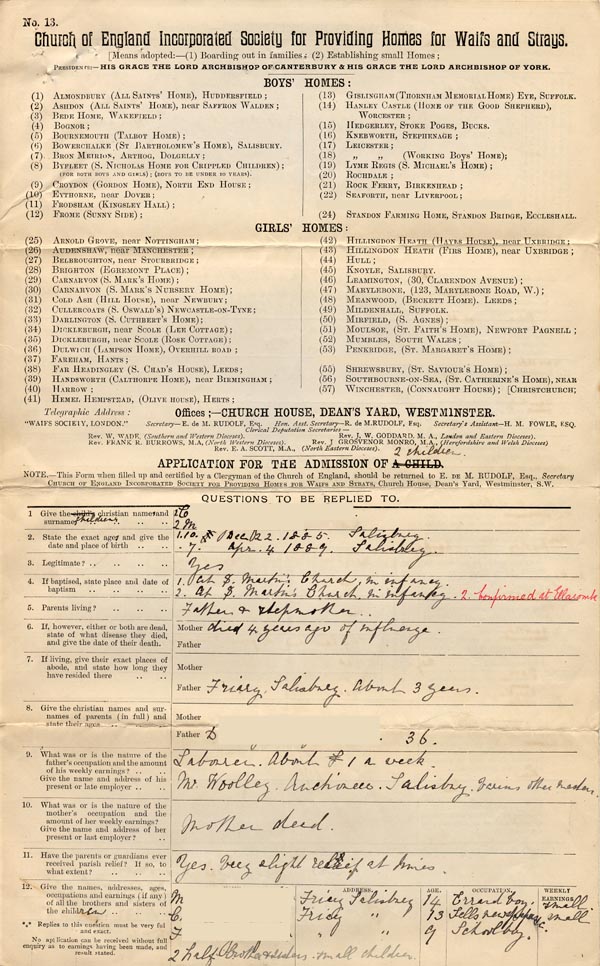 No. 13.
Church of England Incorporated Society for Providing Homes for Waifs and Strays.
[Means adopted:—(1) Boarding out in families; (2) Establishing small Homes;
Presidents:—HIS GRACE THE LORD ARCHBISHOP OF CANTERBURY & HIS GRACE THE LORD ARCHBISHOP OF YORK.
BOYS' HOMES:
(1) Almondbury (All Saints' Home), Huddersfield;
(2) Ashdon (All Saints' Home), near Saffron Walden;
(3) Bede Home, Wakefield;
(4) Bognor;
(5) Bournemouth (Talbot Home);
(6) Bowerchalke (St Bartholomew's Home), Salisbury.
(7) Bron Meirion, Arthog, Dolgelly;
(8) Byfleet (S. Nicholas Home for Crippled Children);
(FOR BOTH BOYS AND GIRLS; (BOYS TO BE UNDER 10 YEARS).
(9) Croydon (Gordon Home), North End House;
(10) Eythorne, near Dover;
(11) Frodsham (Kingsley Hall);
(12) Frome (Sunny Side);
(13) Gislingham (Thornham Memorial Home) Eye, Suffolk.
(14) Hanley Castle (Home of the Good Shepherd), Worcester;
(15) Hedgerley, Stoke Poges, Bucks.
(16) Knebworth, Stephenage;
(17) Leicester;
(18) " " (Working Boys' Home);
(19) Lyme Regis (S. Michael's Home);
(20) Rochdale;
(21) Rock Ferry, Birkenhead;
(22) Seaforth, near Liverpool;
(24) Standon Farming Home, Standon Bridge, Eccleshall.
GIRLS' HOMES:
(25) Arnold Grove, near Nottingham;
(26) Audenshaw, near Manchester;
(27) Belbroughton, near Stourbridge
(28) Brighton (Egremont Place);
(29) Carnarvon (S. Mark's Home);
(30) Carnarvon (S. Mark's Nursery Home);
(31) Cold Ash (Hill House), near Newbury;
(32) Cullercoats (S. Oswald's) Newcastle-on-Tyne;
(33) Darlington (S. Cuthbert's Home);
(34) Dickleburgh, near Scole (Lee Cottage);
(35) Dickleburgh, near Scole (Rose Cottage);
(36) Dulwich (Lampson Home), Overhill Road;
(37) Fareham, Hants;
(38) Far Headingley (S. Chad's House), Leeds;
(39) Handsworth (Calthorpe Home), near Birmingham;
(40) Harrow;
(41) Hemel Hempstead, (Olive House), Herts;
(42) Hillingdon Heath (Hayes House), near Uxbridge;
(43) Hillingdon Heath (Firs Home), near Uxbridge;
(44) Hull;
(45) Knoyle, Salisbury.
(46) Leamington, (30, Clarendon Avenue);
(47) Marylebone, (123, Marylebone Road, W.);
(48) Meanwood, (Beckett Home). Leeds;
(49) Mildenhall, Suffolk.
(50) Mirfield, (S. Agnes);
(51) Moulsoe, (St. Faith's Home), Newport Pagnell;
(52) Mumbles, South Wales;
(53) Penkridge, (St. Margaret's Home);
(55) Shrewsbury, (St. Saviour's Home);
(56) Southbourne-on-Sea, (St. Catherine's Home), near
(57) Winchester, (Connaught House); [Christchurch;
Telegraphic Address: Offices;—CHURCH HOUSE, DEAN'S YARD, WESTMINSTER.
"WAIFS SOCIETY, LONDON." Secretary—E. de M. RUDOLF, Esq. Hon. Asst. Secretary—R. de M. RUDOLF, Esq. Secretary's Assistant—H. M. FOWLE, Esq.
Clerical Deputation Secretaries—
Rev. W. WADE, (Southern and Western Dioceses). Rev. J. W. GODDARD, M. A., London and Eastern Dioceses).
Rev. FRANK R. BURROWS, M.A, (North Western Dioceses). Rev. J GROSVENOR MONRO, M.A., (Herefordshire and Welsh Dioceses)
Rev. E. A. SCOTT, M.A., (North Eastern Dioceses).
2 children.
APPLICATION FOR THE ADMISSION OF A CHILD.
NOTE.—This Form when filled up and certified by a Clergyman of the Church of England, should be returned to E. DE M. RUDOLF, Esq., Secretary
Church of England Incorporated Society for Providing Homes for Waifs and Strays, Church House, Dean's Yard, Westminster, S.W.
QUESTIONS TO BE REPLIED TO.
1 Give the child's christian names and surname
childrens
1 C
2 M
2. State the exact ages and give the date and place of birth
1. 10. Dec. 22. 1885. Salisbury.
. 7. Apr. 4 1889. Salisbury.
3. Legitimate?
Yes
4. If baptised, state place and date of baptism
1. At S. Martin's Church, in infancy.
2. At S. Martin's Church in infancy. 2. Confirmed at Ellacombe
5. Parents living?
Father & stepmother.
6. If, however, either or both are dead, state of what disease they died, and give the date of their death.
Mother died 4 years ago of influenza.
Father
7. If living, give their exact places of abode, and state how long they have resided there
Mother
Father Friary, Salisbury. About 3 years.
8. Give the christian names and surnames of parents (in full) and state their ages.
Mother
Father D 36.
9. What was or is the nature of the father's occupation and the amount of his weekly earnings?
Give the name and address of his present or late employer
Labourer. About £1 a week.
Mr Woolley. Auctioneer. Salisbury. Serves other masters.
10. What was or is the nature of the mother's occupation and the amount of her weekly earnings?
Give the name and address of her present or last employer?
Mother dead.
11. Have the parents or guardians ever received parish relief? If so, to what extent?
Yes. Very slight relief at times.
12. Give the names, addresses, ages, occupations and earnings (if any) of all the brothers and sisters of the children
*** Replies to this question must be very full and exact.
No application can be received without full enquiry as to earnings having been made, and result stated.
ADDRESS. AGE. OCCUPATION. WEEKLY EARNINGS
M Friary Salisbury 14 Errand boy. small
C. Friary " 13 Sells newspapers. small
F " " 9 Schoolboy.
2 half brothers & sisters. small children.